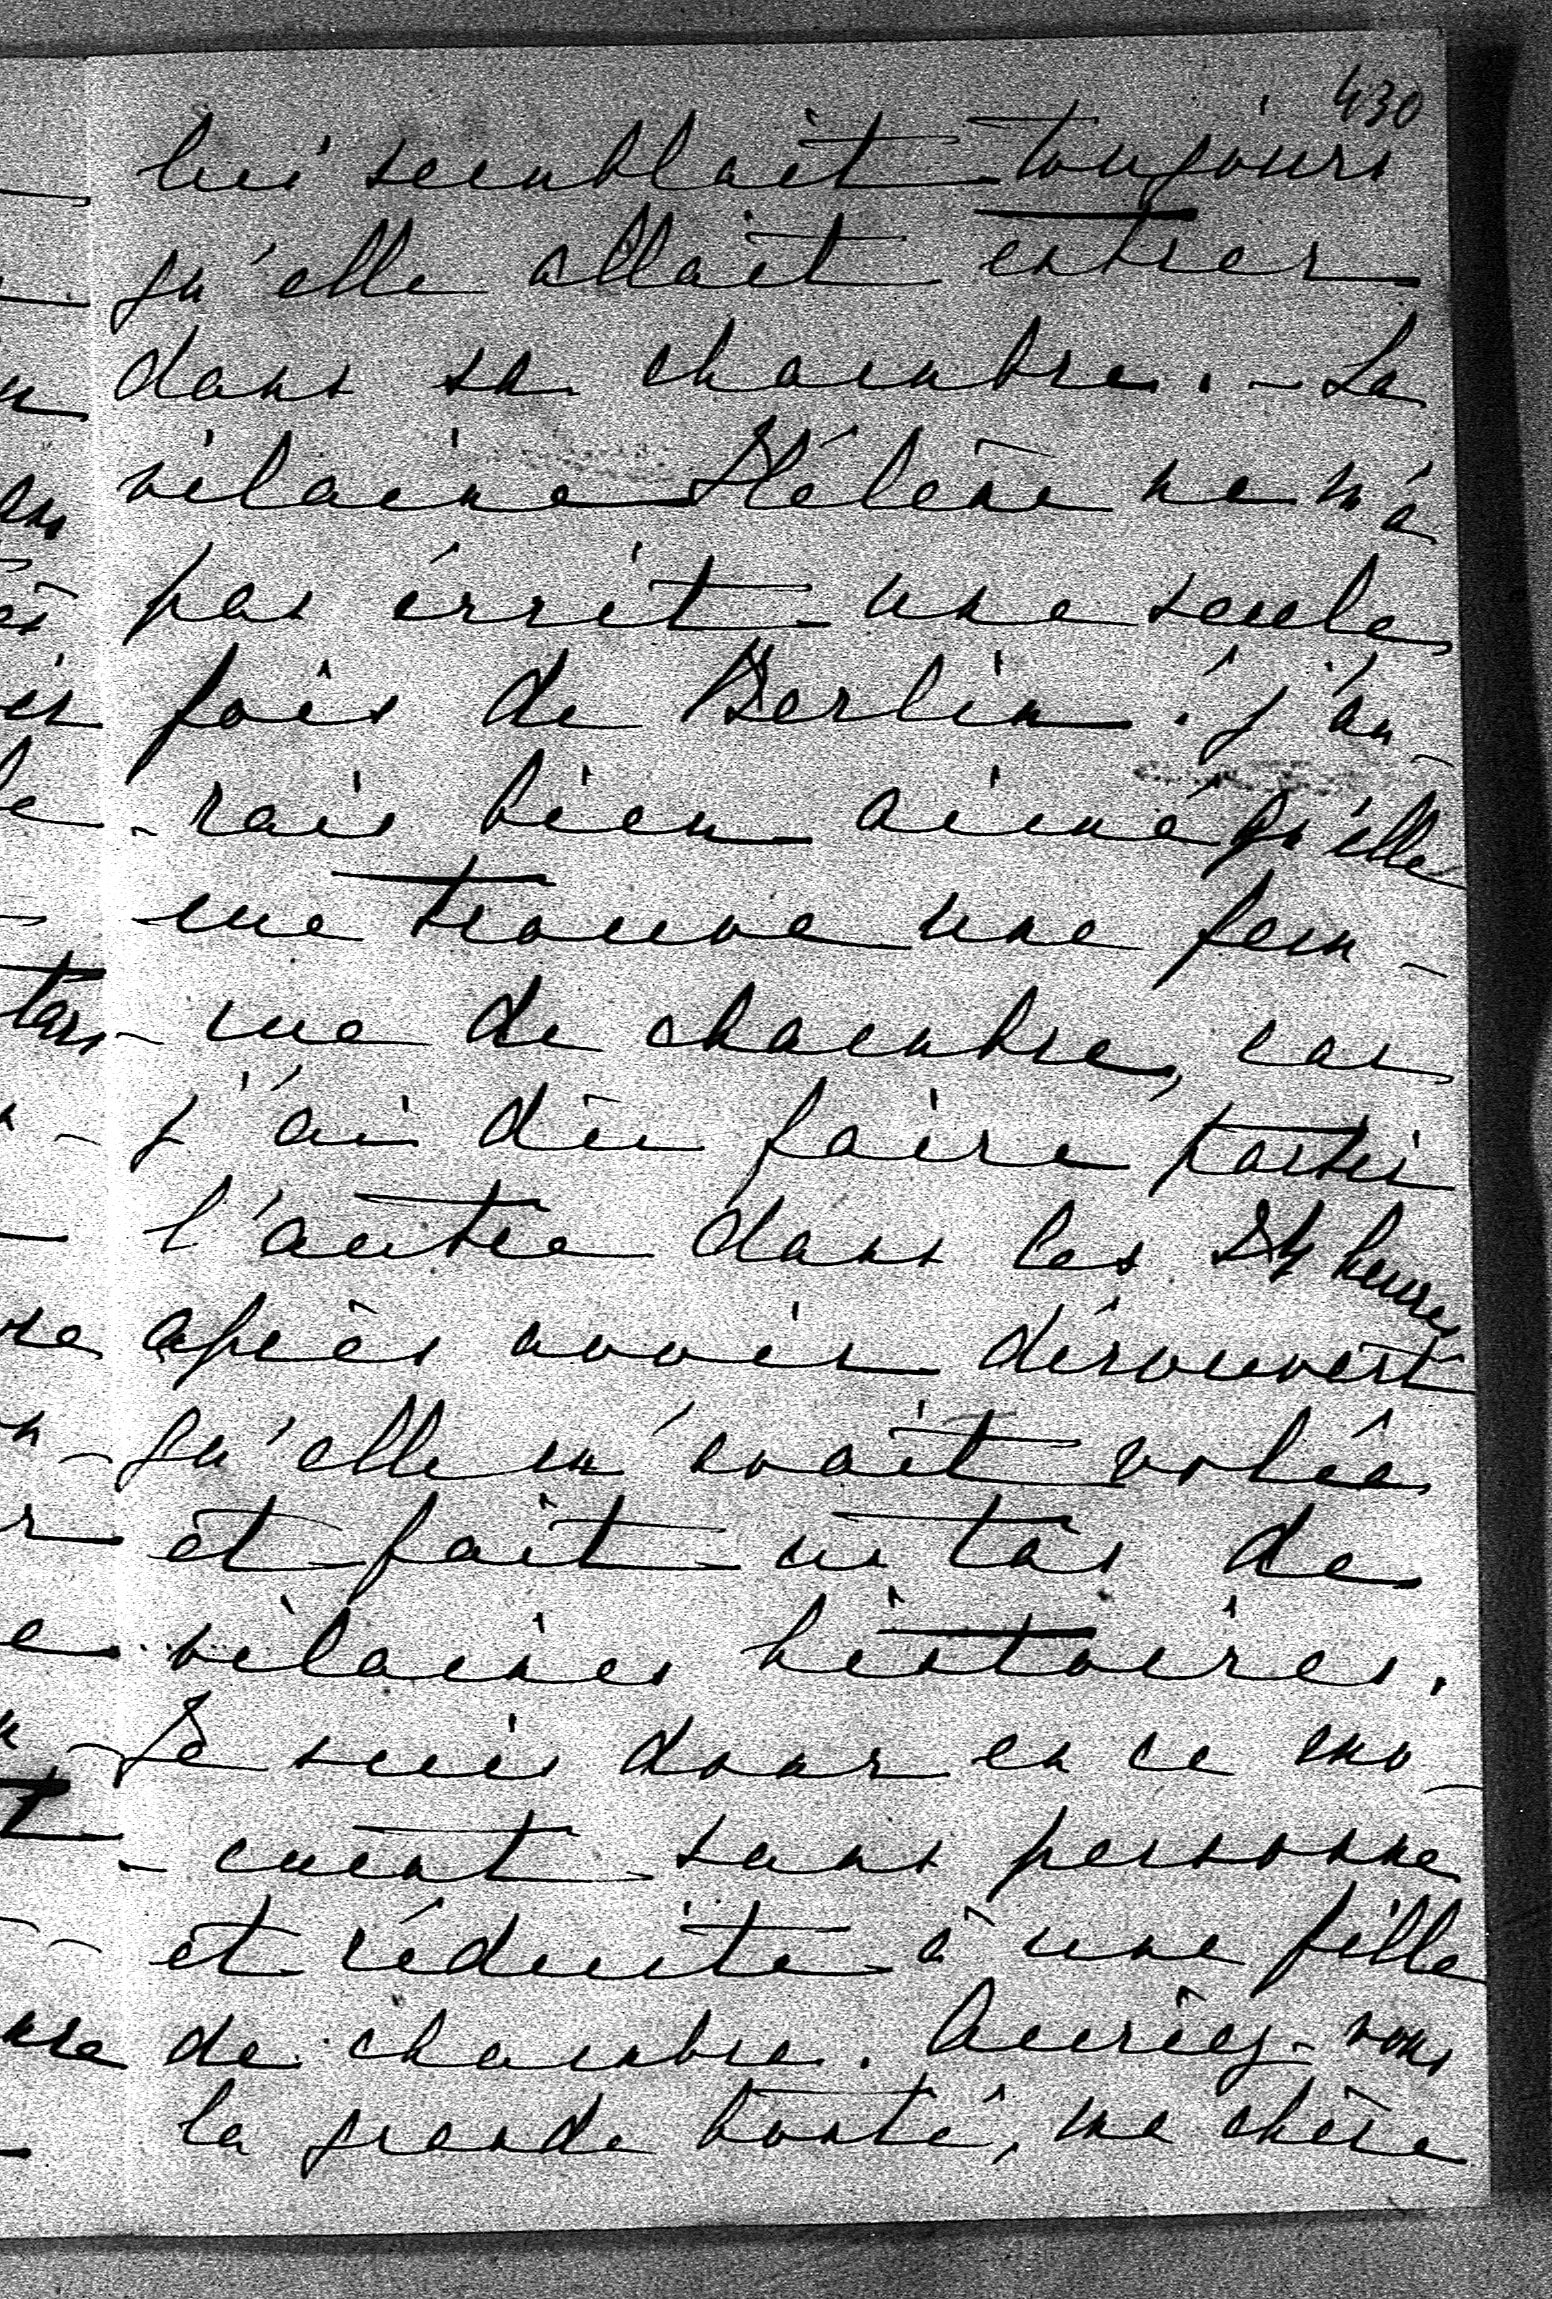 430
lui semblait toujours
qu'elle allait entrer
dans sa chambre. - La
vilaine Hélène ne m'a
pas écrit une seule
fois de Berlin. j'au-
-rais bien aimé qu'elle
me trouve une fem-
-me de chambre, car
j'ai dû faire partir
l'autre dans les 24 heures
après avoir découvert
qu'elle m'avait volée
et fait un tas de
vilaines histoires.
Je suis donc en ce mo-
-ment sans personne
et réduite à une fille
de chambre. Auriez-vous
la grande bonté, ma chère